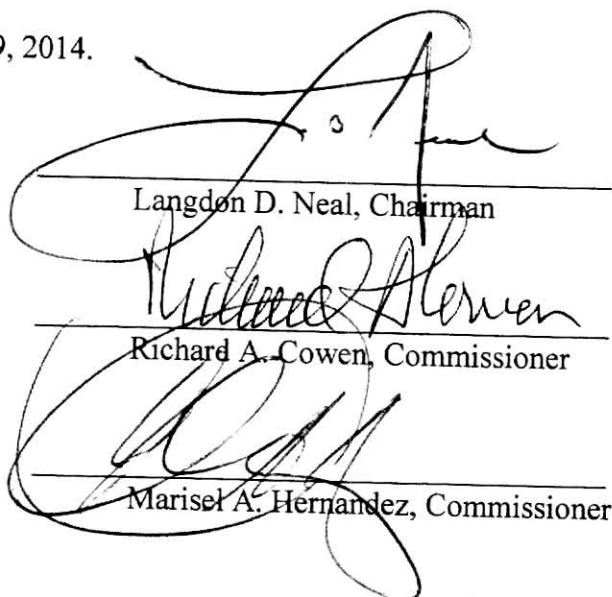 9, 2014.
Langdon D. Neal, Chairman
Richard A. Cowen
Richard A. Cowen, Commissioner
Marisel A. Hernandez, Commissioner